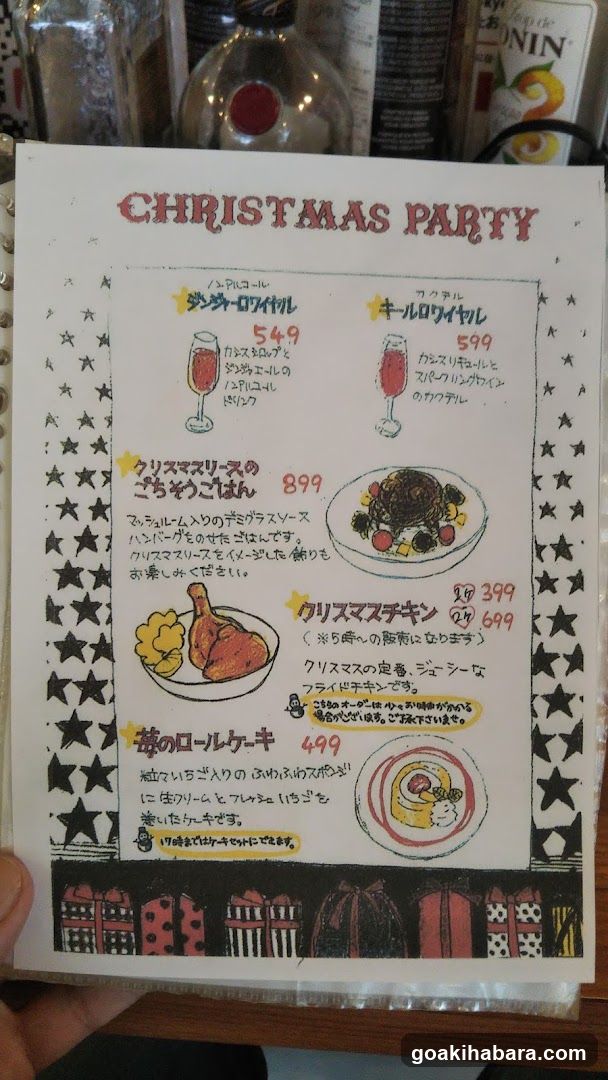 ONIN
CHRISTMAS PARTY
ノンアルコール
ジンジャーロワイヤル
549
カシスシロップと
ジンジャエールの
ノンアルコール
ドリンク
カクテル
キールロワイヤル
599
カシスリキュールと
スパークリングワイン
のカクテル
クリスマスリースの
ごちそうごはん 899
マッシュルーム入りのデミグラスソース
ハンバーグをのせたごはんです。
クリスマスリースをイメージした飾りも
お楽しみください。
クリスマスチキン
1ケ 399
2ケ 699
(※5時〜の販売になります)
クリスマスの定番、ジューシーな
フライドチキンです。
こちらのオーダーは少々お時間がかかる
場合がございます。ご了承下さいませ。
苺のロールケーキ 499
粒々いちご入りのふわふわスポンジ
に生クリームとフレッシュいちごを
巻いたケーキです。
17時まではケーキセットにできます。
goakihabara.com